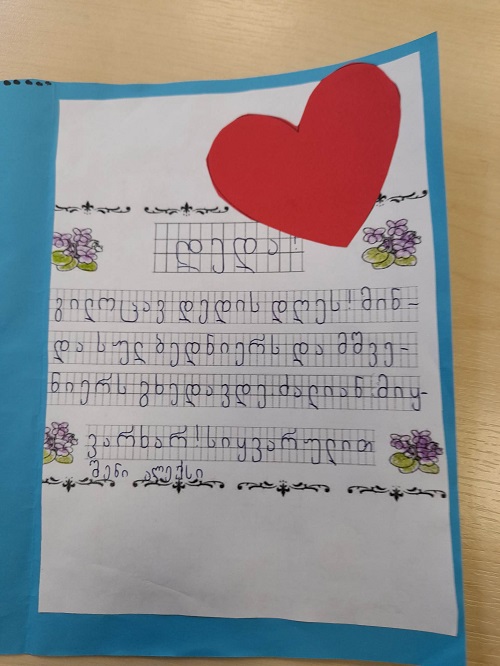 დედა!
გილოცავ დედის დღეს! მინ-
და სულ ბედნიერს და მშვე-
ნიერს გხედავდე. ძალიან მიყ-
ვარხარ! სიყვარულით
შენი ალექსი